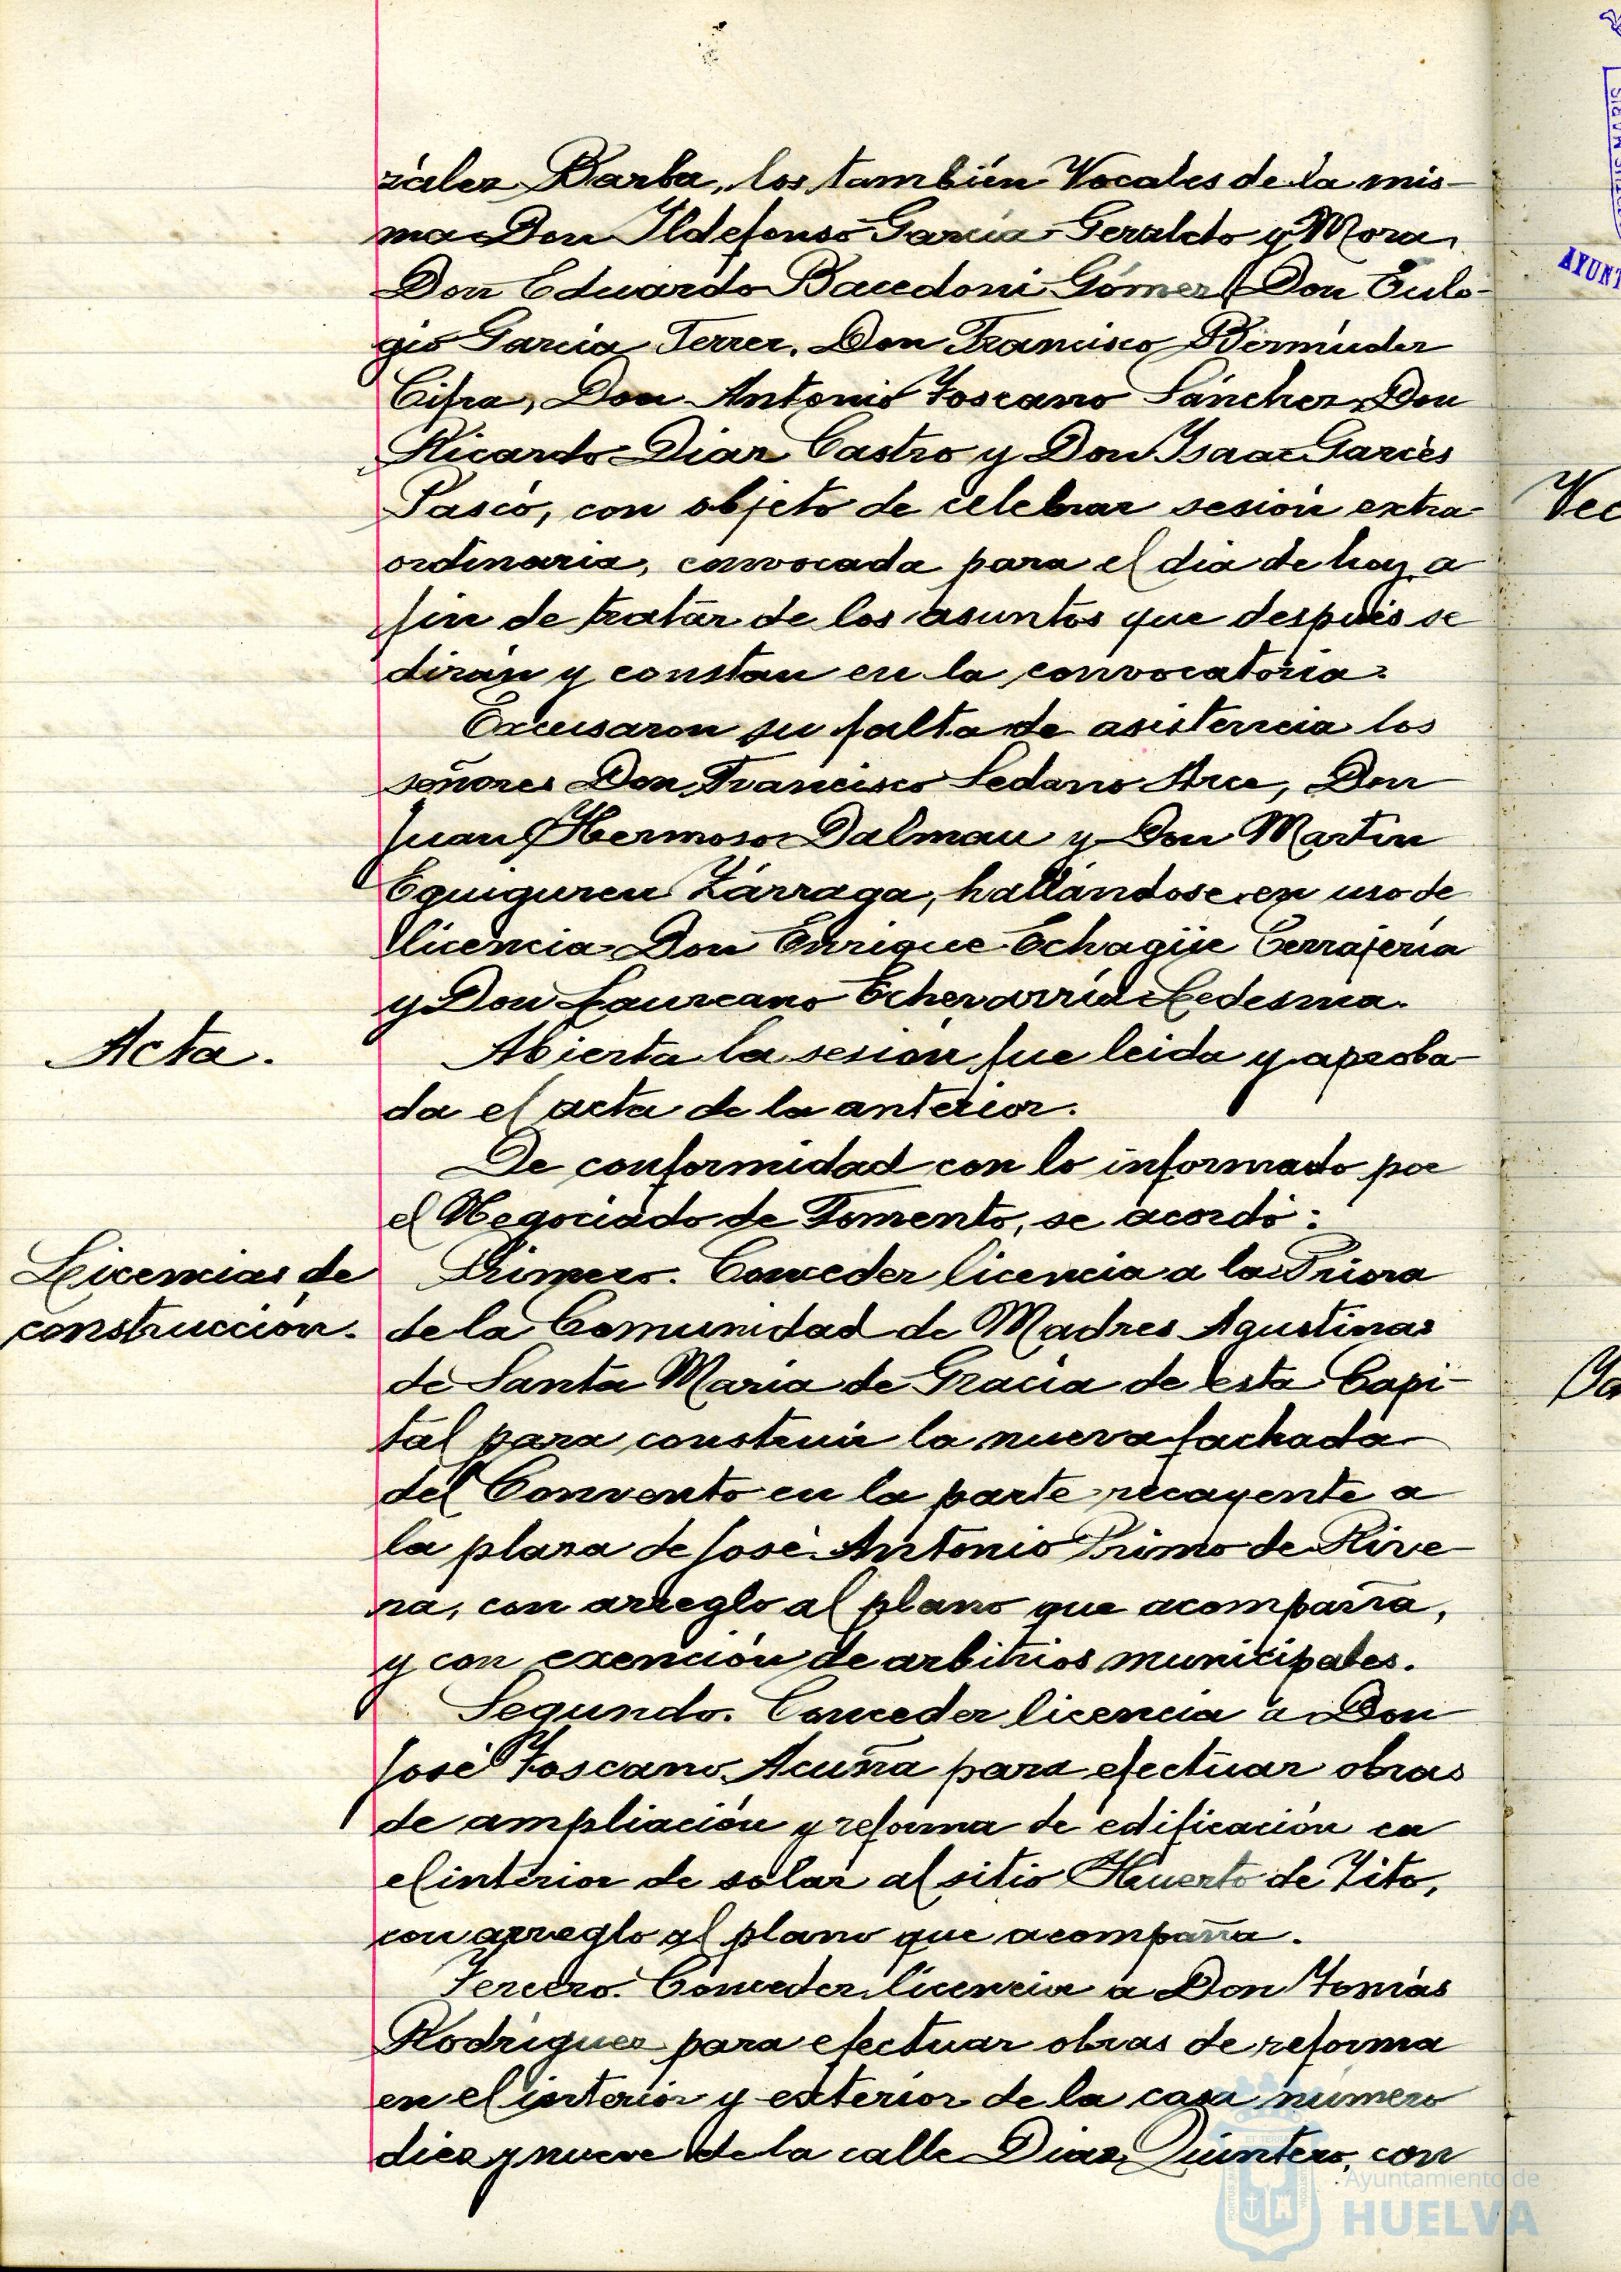 zález Barba, los también Vocales de la mis-
ma Don Ildefonso García Geraldo y Mora,
Don Eduardo Bacedoni Gómez, Don Eulo-
gio García Ferrer, Don Francisco Bermúdez
Cifra, Don Antonio Toscano Sánchez, Don
Ricardo Díaz Castro y Don Isaac Garcés
Pascó, con objeto de celebrar sesión extra-
ordinaria, convocada para el día de hoy a
fin de tratar de los asuntos que después se
dirán y constan en la convocatoria.
Excusaron su falta de asistencia los
señores Don Francisco Sedano Arce, Don
Juan Hermoso Dalmau y Don Martín
Eguiguren Zárraga, hallándose en uso de
licencia Don Enrique Echagüe Cerrajería
y Don Laureano Echevarría Ledesma.
Acta.
Abierta la sesión fue leída y aproba-
da el acta de la anterior.
De conformidad con lo informado por
el Negociado de Fomento, se acordó:
Licencias de
construcción.
Primero. Conceder licencia a la Priora
de la Comunidad de Madres Agustinas
de Santa María de Gracia de esta Capi-
tal para construir la nueva fachada
del Convento en la parte recayente a
la plaza de José Antonio Primo de Rive-
ra, con arreglo al plano que acompaña,
y con exención de arbitrios municipales.
Segundo. Conceder licencia a Don
José Toscano Acuña para efectuar obras
de ampliación y reforma de edificación en
el interior de solar al sitio Huerto de Tito,
con arreglo al plano que acompaña.
Tercero. Conceder licencia a Don Tomás
Rodríguez para efectuar obras de reforma
en el interior y exterior de la casa número
diez y nueve de la calle Díaz Quintero, con
Ayuntamiento de
HUELVA